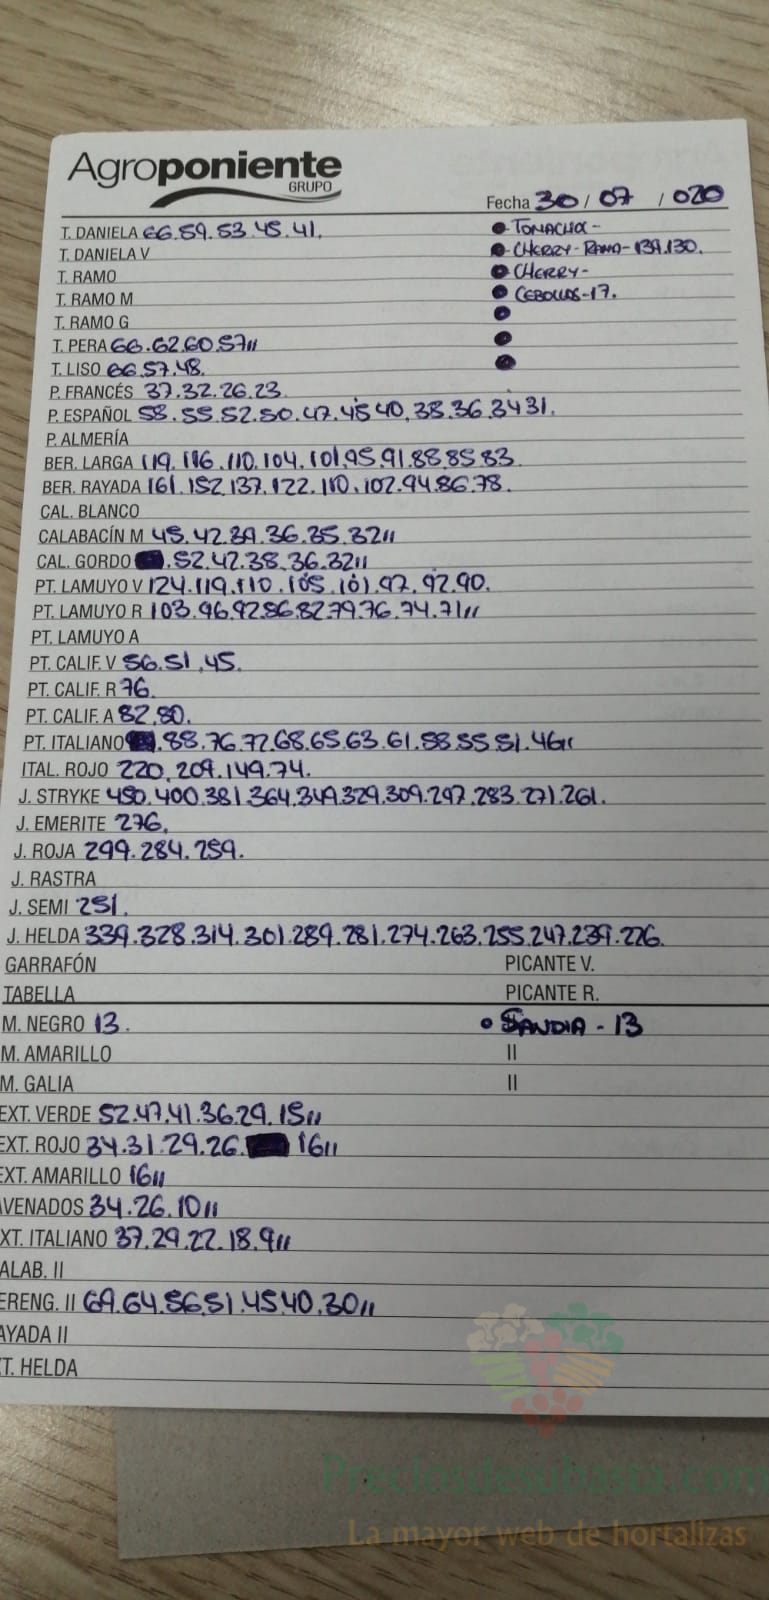 Agroponiente
GRUPO
Fecha 30 / 07 / 020
T. DANIELA 66.59.53.45.41.
T. DANIELA V
T. RAMO
T. RAMO M
T. RAMO G
T. PERA 66.62.60.57,,
T. LISO 66.57.48.
- TOMACHOX -
- CHERRY - RAMA - 139.130.
- CHERRY -
CEBOLLAS - 17.
P. FRANCÉS 37.32.26.23.
P. ESPAÑOL 58.55.52.50.47.45 40.38.36.34 31.
P. ALMERÍA
BER. LARGA 119.116.110.104.101.95.91.88.85.83.
BER. RAYADA 161.152.137.122.110.102.94.86.78.
CAL. BLANCO
CALABACÍN M 45.42.39.36.35.32,,
CAL. GORDO .52.42.38.36.32,,
PT. LAMUYO V 124.119.110.105.101.97.92.90.
PT. LAMUYO R 103.96.92.86.82.79.76.74.71,,
PT. LAMUYO A
PT. CALIF. V 56.51.45.
PT. CALIF. R 76.
PT. CALIF. A 82.80.
PT. ITALIANO .88.76.72.68.65.63.61.58.55.51.46,,
ITAL. ROJO 220.209.149.74.
J. STRYKE 450.400.381.364.349.329.309.297.283.271.261.
J. EMERITE 276.
J. ROJA 299.284.259.
J. RASTRA
J. SEMI 251.
J. HELDA 339.328.314.301.289.281.274.263.255.247.239.226.
GARRAFÓN PICANTE V.
TABELLA PICANTE R.
M. NEGRO 13. • SANDIA - 13
M. AMARILLO II
M. GALIA II
EXT. VERDE 52.47.41.36.29.15,,
EXT. ROJO 34.31.29.26. 16,,
EXT. AMARILLO 16,,
AVENADOS 34.26.10,,
XT. ITALIANO 37.29.22.18.9,,
ALAB. II
ERENG. II 69.64.56.51.45.40.30,,
AYADA II
XT. HELDA
Preciosdesubasta.com
La mayor web de hortalizas